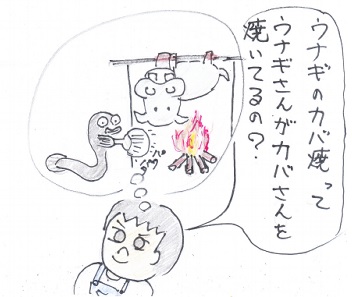 ウナギのカバ焼って
ウナギさんがカバさんを
焼いてるの？
パタ
パタ